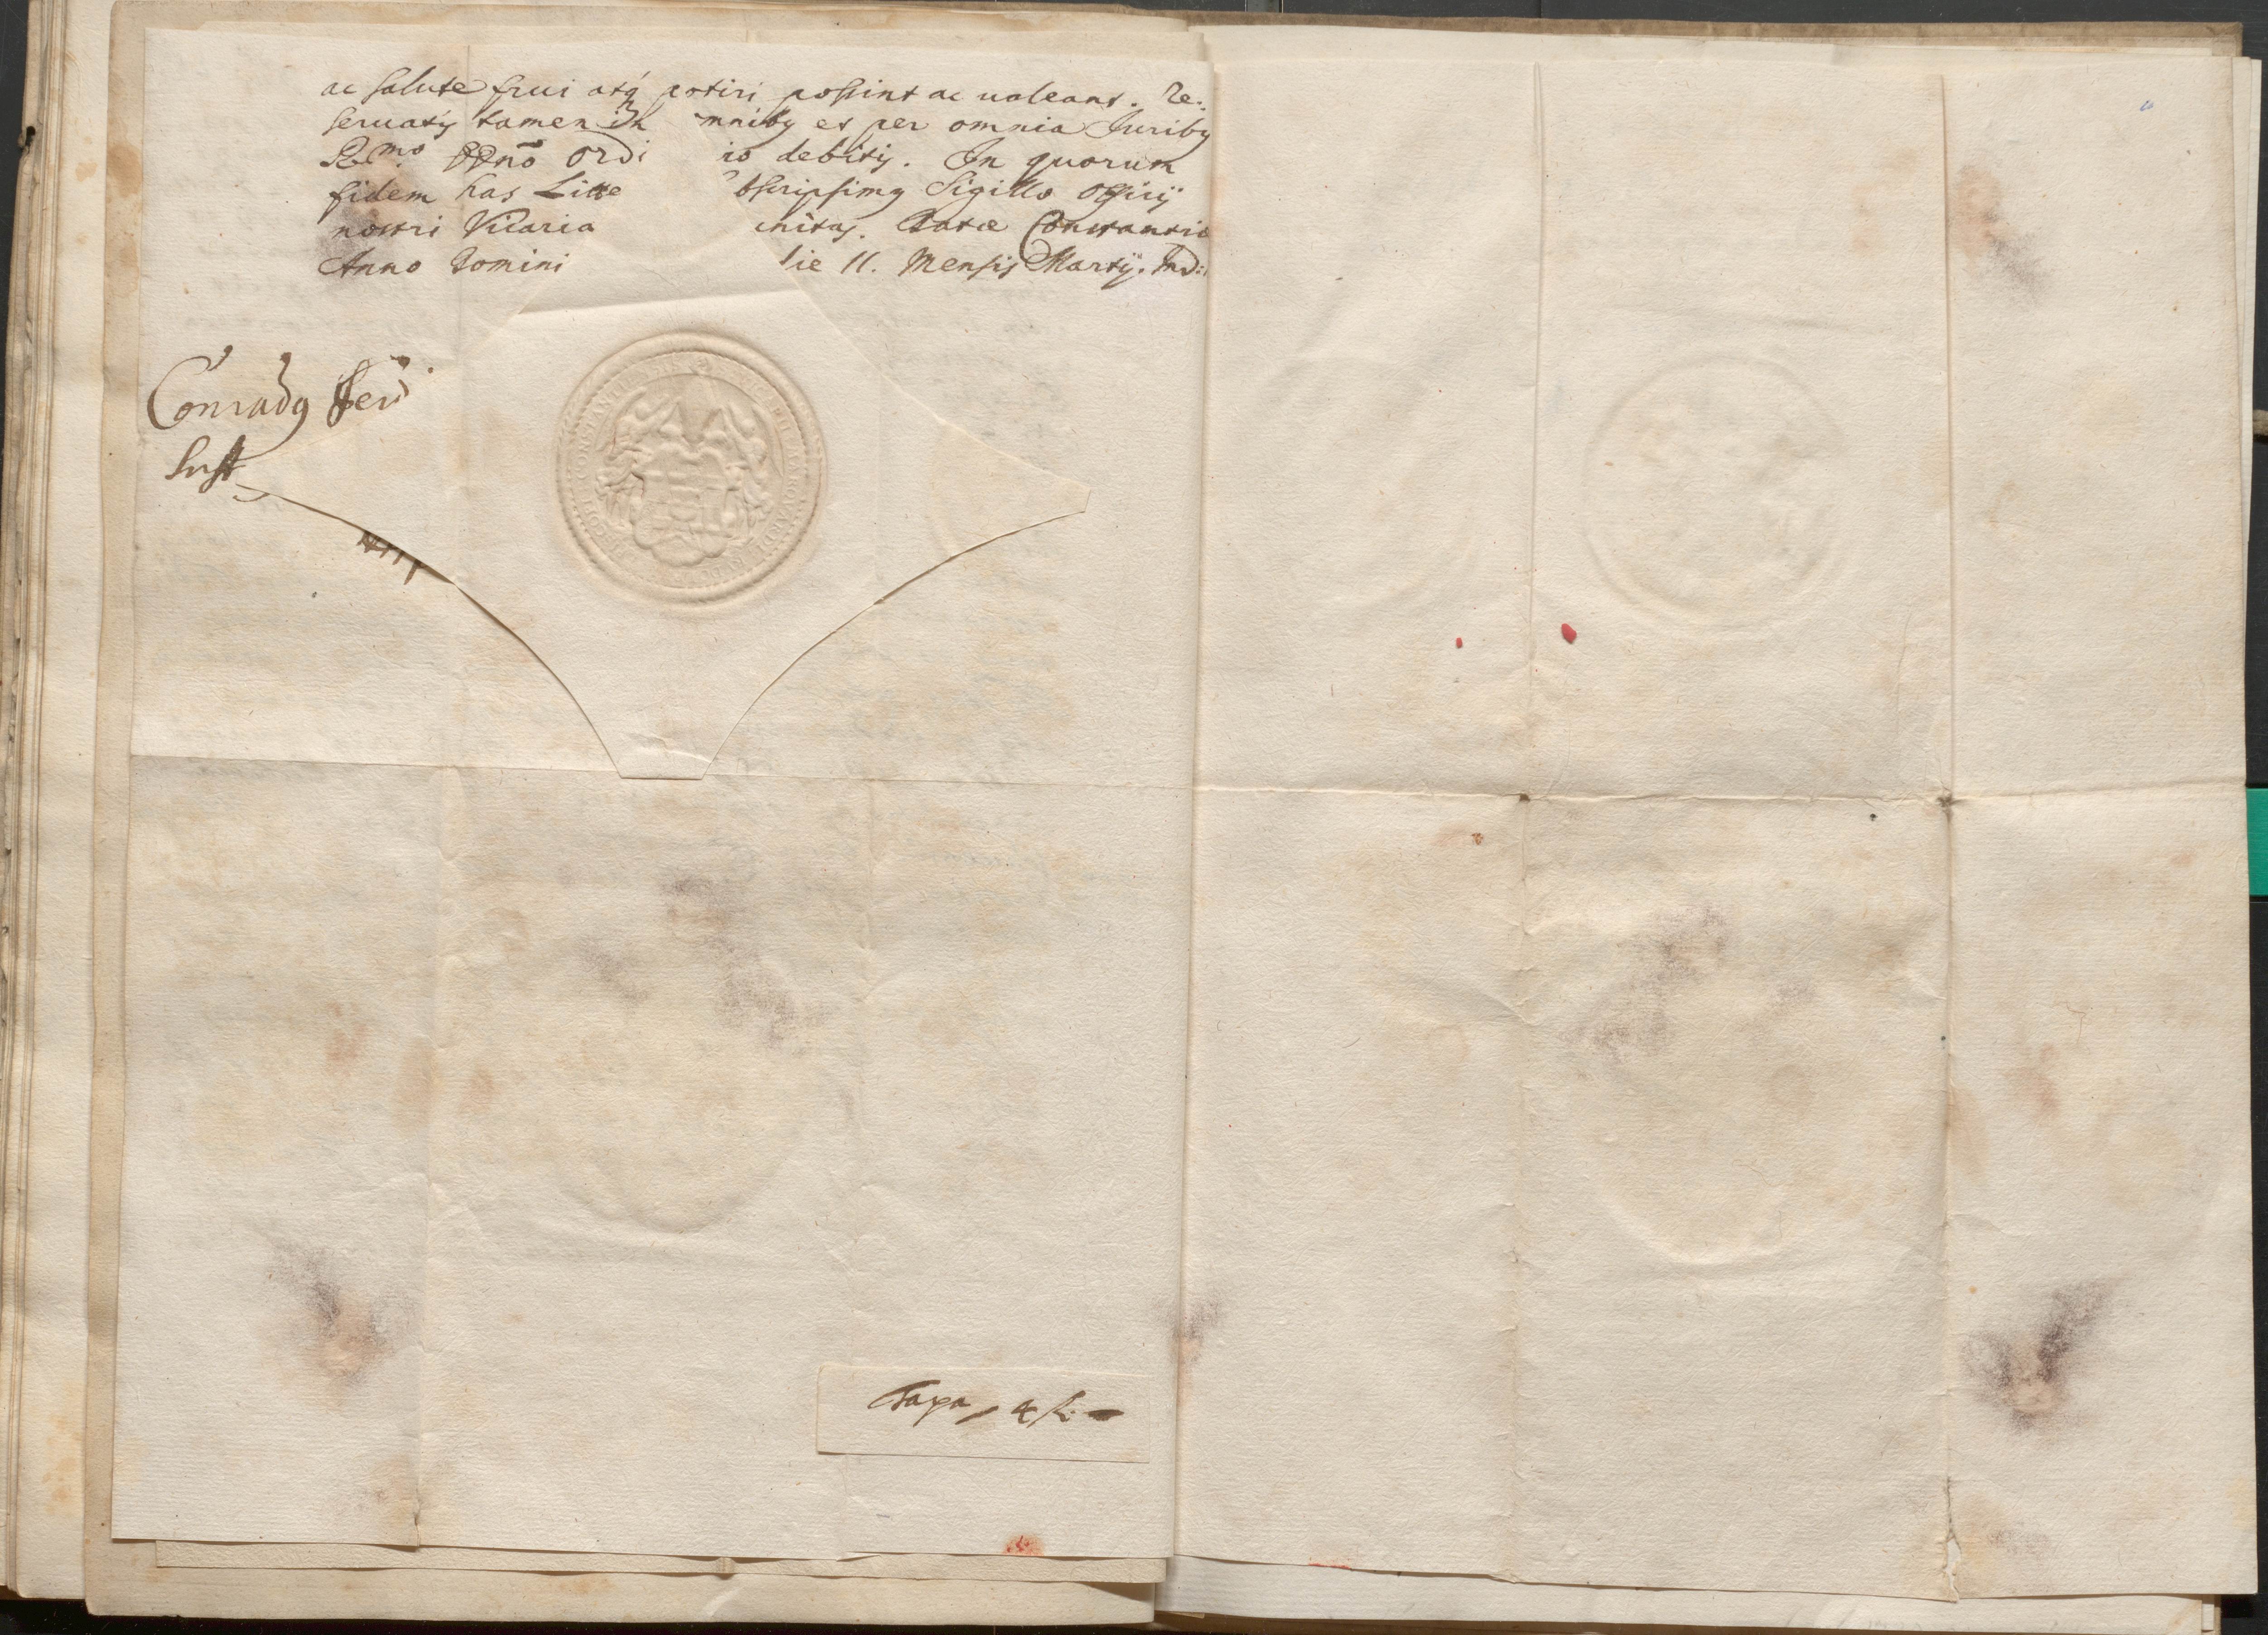 ac salute frui atq́ potiri possint ac ualeant. Re:
seruatis tamen in mnibq et per omnia Juribq
Rmo. DDño Ordi io debitis. In quorum
fidem has Litte bscripsimq Sigillo Officij
nostri Vicaria nitas. Datæ Constantiæ
Anno Domini die 11. Mensis Martij. Ind:
Conradq Ferd
Taxa 4 f.